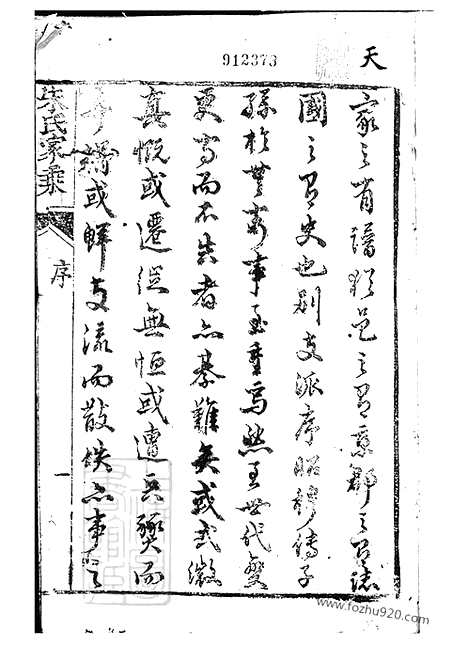 912373
天
家之有譜猶邑之有乘郡之有誌
國之有史也別支派序昭穆傳子
孫於無窮事至重焉然至世代變
更寫而不失者亦綦難矣或式微
莫慨或遷徙無恒或遭兵燹而
或鮮支流而散佚亦事之
宋氏家乘
序
一
www.fozhu920.com